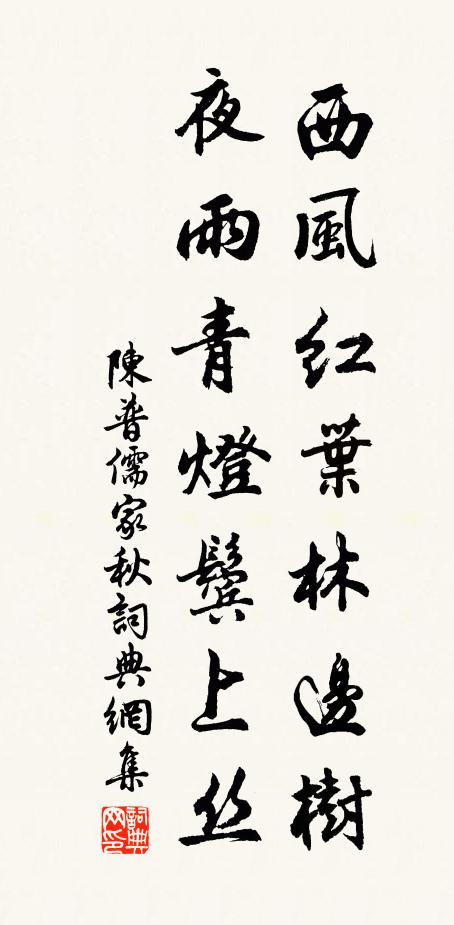 西風红葉林邊樹
夜雨青燈鬢上丝
陳普儒家秋詞典網集
詞典网印